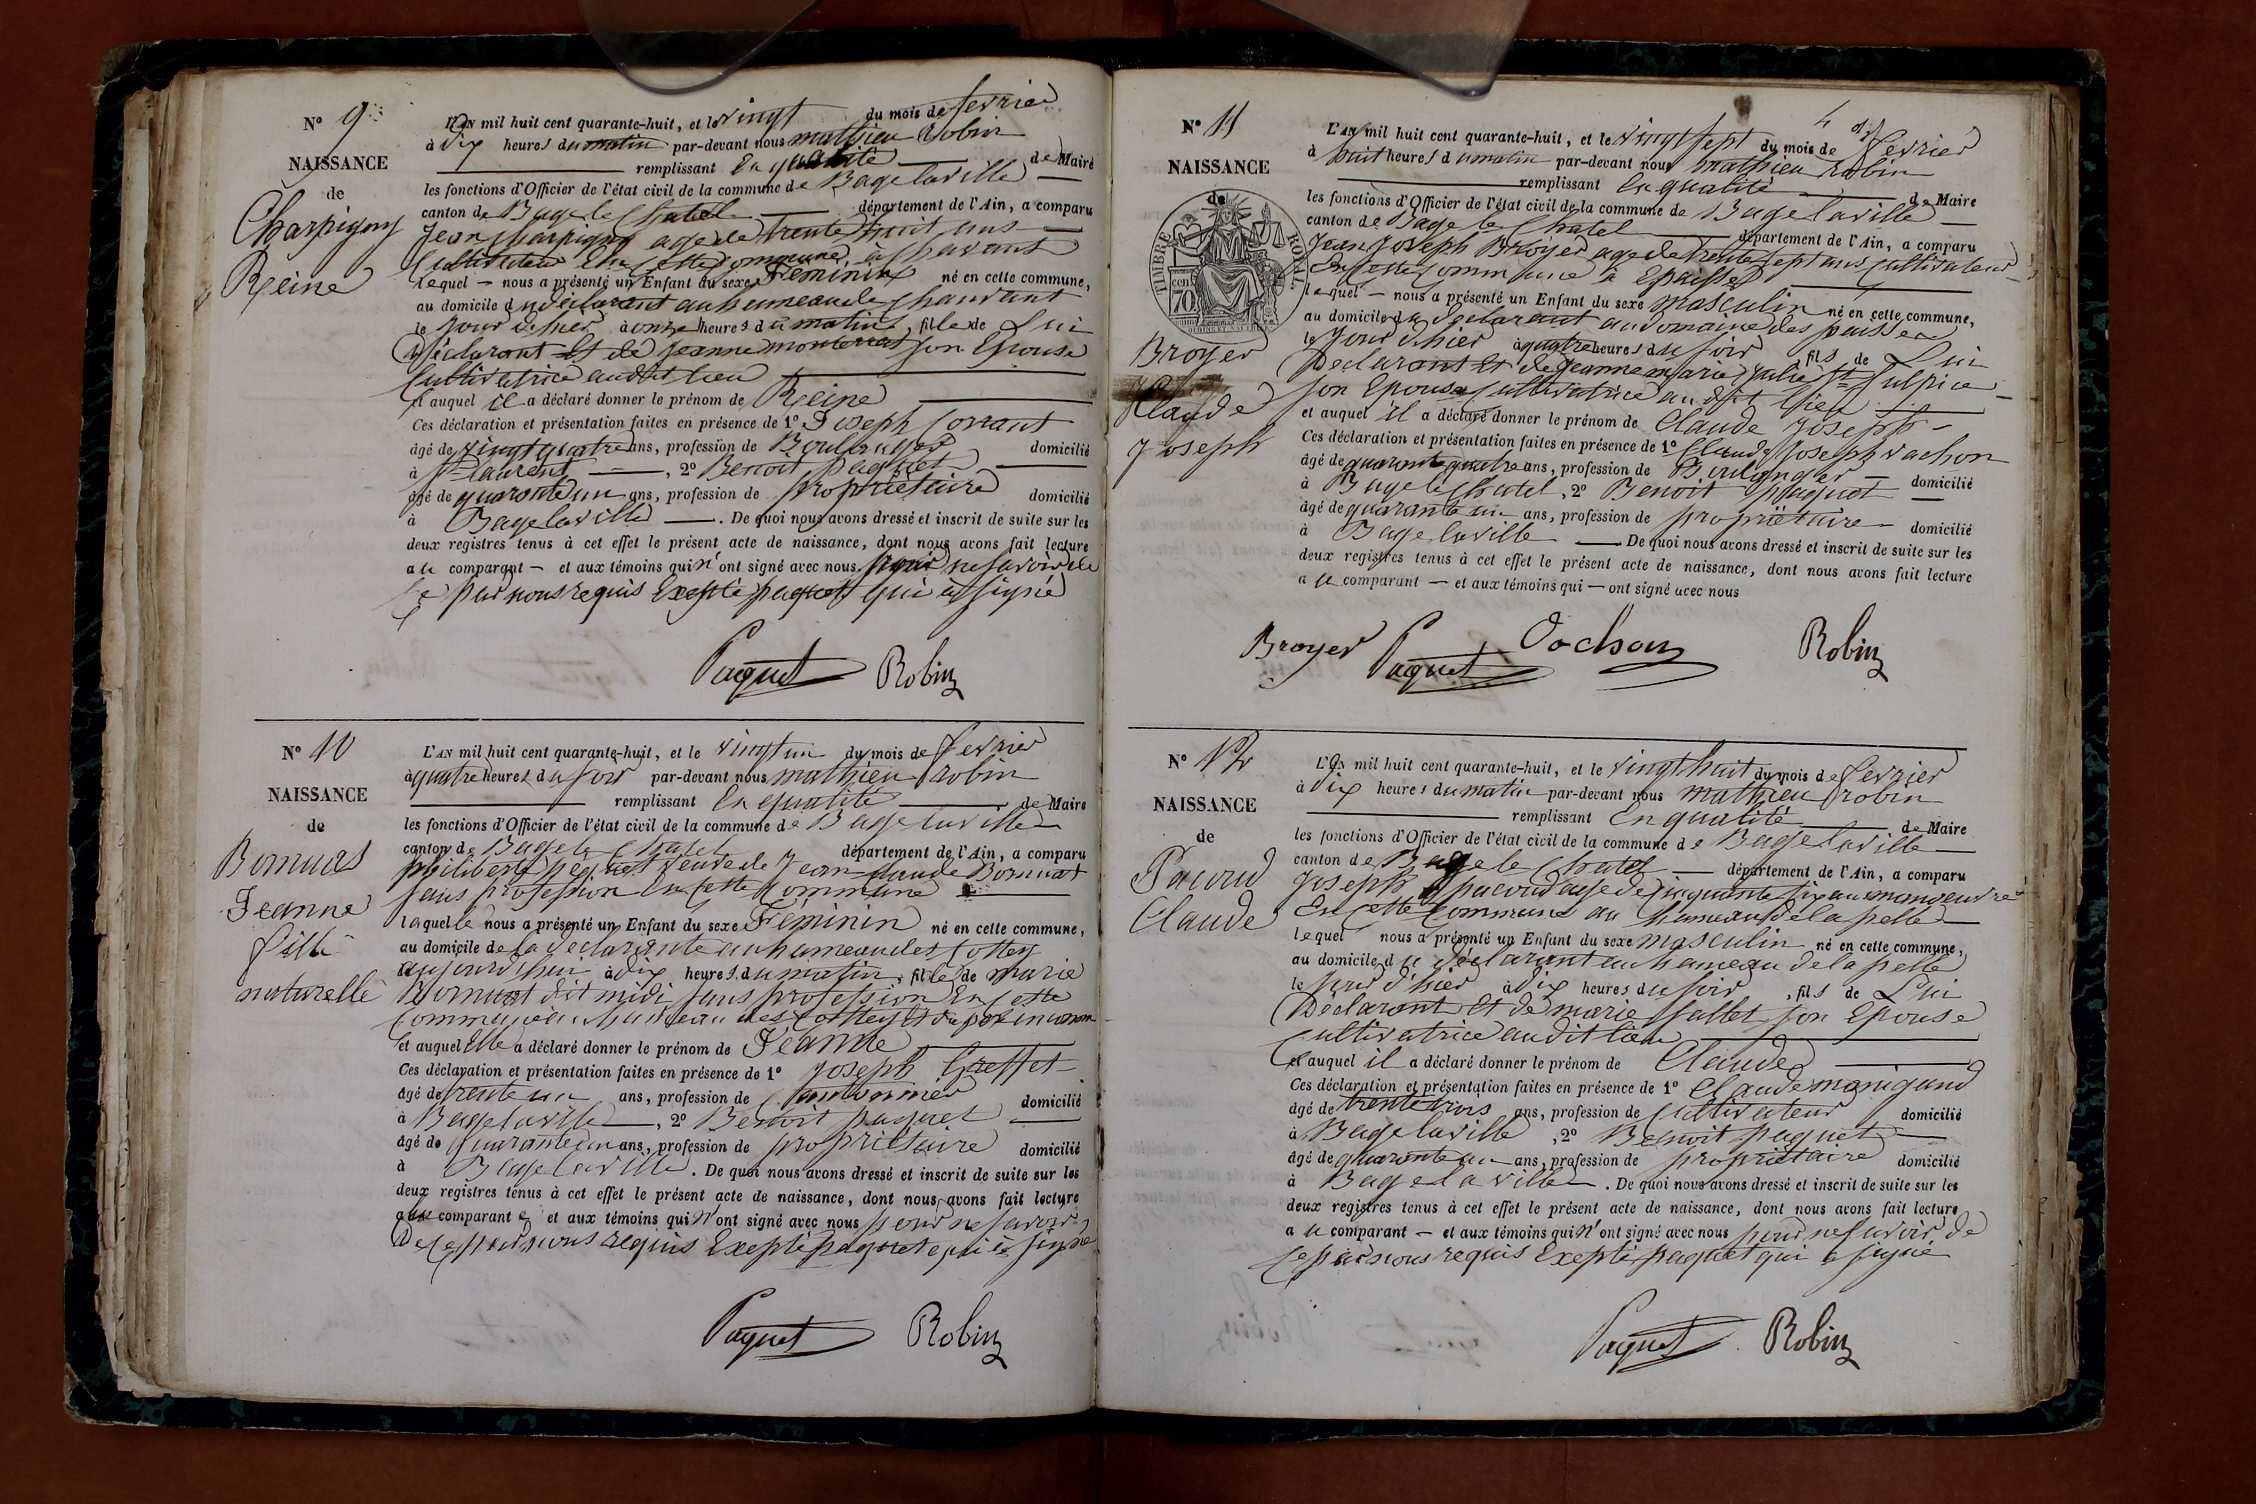 N° 9
NAISSANCE
de
Charpigny
Reine
L'AN mil huit cent quarante-huit, et le vingt du mois de fevrier
à Dix heures du matin par-devant nous mathieu Robin
remplissant En qualité de Maire
les fonctions d'Officier de l'état civil de la commune de Bagelaville
canton de Bage le Chatel département de l'Ain, a comparu
Jean Charpigny age de trente huit ans
Cultivateur En cette Commune, à Chavant
lequel nous a présenté un Enfant du sexe Feminin né en cette commune,
au domicile du déclarant au hameau de Chavant
le jour d'hier à onze heures du matin, fille de Lui
Déclarant Et de Jeanne monterrat son Epouse
Cultivatrice audit lieu
et auquel il a déclaré donner le prénom de Reine
Ces déclaration et présentation faites en présence de 1° Joseph Corrant
âgé de vingt quatre ans, profession de Boulanger domicilié
à St laurent, 2° Benoit paquet
âgé de quarante un ans, profession de propriétaire domicilié
à Bagelaville. De quoi nous avons dressé et inscrit de suite sur les
deux registres tenus à cet effet le présent acte de naissance, dont nous avons fait lecture
au comparant et aux témoins qui n'ont signé avec nous pour ne savoir de
Ce par nous requis Exepté paquet qui à signé
Paquet Robin
N° 10
NAISSANCE
de
Bornuat
Jeanne
fille
naturelle
L'AN mil huit cent quarante-huit, et le vingt un du mois de fevrier
à quatre heures du soir par-devant nous mathieu robin
remplissant En qualité de Maire
les fonctions d'Officier de l'état civil de la commune de Bagelaville
canton de Bage le Chatel département de l'Ain, a comparu
philiberte veuve de Jean claude Bornuat
sans profession En cette Commune
laquelle nous a présenté un Enfant du sexe Feminin né en cette commune,
au domicile de la déclarante au hameau des Cottey
aujourd'hui à dix heures du matin, fille de marie
Bornuat dit midi sans profession En cette
Commune au hameau des Cottey Et du père inconnu
et auquel Elle a déclaré donner le prénom de Jeanne
Ces déclaration et présentation faites en présence de 1° Joseph Greffet
âgé de trente un ans, profession de Cantonnier domicilié
à Bagelaville, 2° Benoit paquet
âgé de quarante un ans, profession de propriétaire domicilié
à Bagelaville. De quoi nous avons dressé et inscrit de suite sur les
deux registres tenus à cet effet le présent acte de naissance, dont nous avons fait lecture
comparante et aux témoins qui n'ont signé avec nous pour ne savoir
De ce par nous requis Exepté paquet qui à signé
Paquet Robin
N° 11
NAISSANCE
de
TIMBRE ROYAL
70 cen
Broyer
Claude
Joseph
L'AN mil huit cent quarante-huit, et le vingt sept du mois de fevrier
à huit heures du matin par-devant nous mathieu Robin
remplissant En qualité de Maire
les fonctions d'Officier de l'état civil de la commune de Bagelaville
canton de Bage le Chatel département de l'Ain, a comparu
Jean Joseph Broyer age de trente sept ans cultivateur
En cette Commune à Epaisse
lequel nous a présenté un Enfant du sexe masculin né en cette commune,
au domicile du Declarant au domaine des paisse
le jour d'hier à quatre heures du soir, fils de Lui
Declarant Et de Jeanne marie Julie St Sulpice
son Epouse Cultivatrice au dit lieu
et auquel il a déclaré donner le prénom de Claude Joseph
Ces déclaration et présentation faites en présence de 1° Claude Joseph vachon
âgé de quarante quatre ans, profession de Boulanger domicilié
à Bage le Chatel, 2° Benoit paquet
âgé de quarante un ans, profession de propriétaire domicilié
à Bagelaville. De quoi nous avons dressé et inscrit de suite sur les
deux registres tenus à cet effet le présent acte de naissance, dont nous avons fait lecture
au comparant et aux témoins qui ont signé avec nous
Broyer Paquet Vachon Robin
N° 12
NAISSANCE
de
Pacoud
Claude
L'AN mil huit cent quarante-huit, et le vingt huit du mois de fevrier
à Dix heures du matin par-devant nous mathieu robin
remplissant En qualité de Maire
les fonctions d'Officier de l'état civil de la commune de Bagelaville
canton de Bage le Chatel département de l'Ain, a comparu
Joseph pacoud age de Cinquante six ans manoeuvre
En cette Commune au hameau de la pelle
lequel nous a présenté un Enfant du sexe masculin né en cette commune,
au domicile du déclarant au hameau de la pelle
le jour d'hier à dix heures du soir, fils de Lui
Déclarant Et de marie Sallet son Epouse
cultivatrice audit lieu
et auquel il a déclaré donner le prénom de Claude
Ces déclaration et présentation faites en présence de 1° Claude manigand
âgé de trente trois ans, profession de Cultivateur domicilié
à Bagelaville, 2° Benoit paquet
âgé de quarante un ans, profession de propriétaire domicilié
à Bagelaville. De quoi nous avons dressé et inscrit de suite sur les
deux registres tenus à cet effet le présent acte de naissance, dont nous avons fait lecture
au comparant et aux témoins qui n'ont signé avec nous pour ne savoir de
Ce par nous requis Exepté paquet qui à signé
Paquet Robin